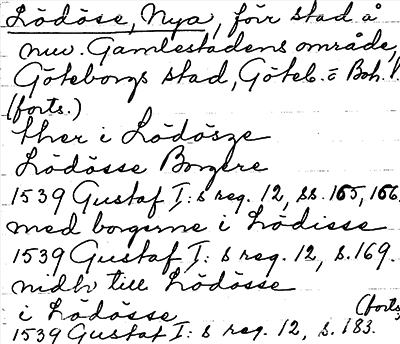 Lödöse, Nya, förr stad å
nuv. Gamlestadens område,
Göteborgs stad, Göteb. o Boh. l.
(forts.)
ther i Lödösze
Lödösse Borgere
1539 Gustaf I:s reg. 12, ss. 165, 166.
med borgerne i Lödisse
1539 Gustaf I:s reg. 12, s. 169.
nidh till Lödösse
i Lödösse
(forts.
1539 Gustaf I:s reg. 12, s. 183.